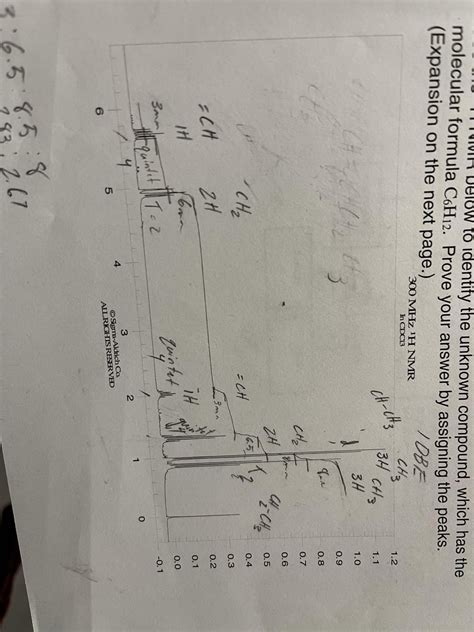 NMR below to identify the unknown compound, which has the
molecular formula C₆H₁₂. Prove your answer by assigning the peaks.
(Expansion on the next page.)
1 DBE
300 MHz ¹H NMR
In CDCl3
CH-CH₃
CH₃
3H
CH₃
3H
CH₂
2H
CH-CH₂
=CH
1H
quintet
CH₂
2H
=CH
1H
3mm
6mm
9mm
6.5
8mm
quintet
1.2
1.1
1.0
0.9
0.8
0.7
0.6
0.5
0.4
0.3
0.2
0.1
0.0
-0.1
6
5
4
3
2
1
0
© Sigma-Aldrich Co.
ALL RIGHTS RESERVED
3 : 6.5 : 8.5 : 8
2.83 : 2.67